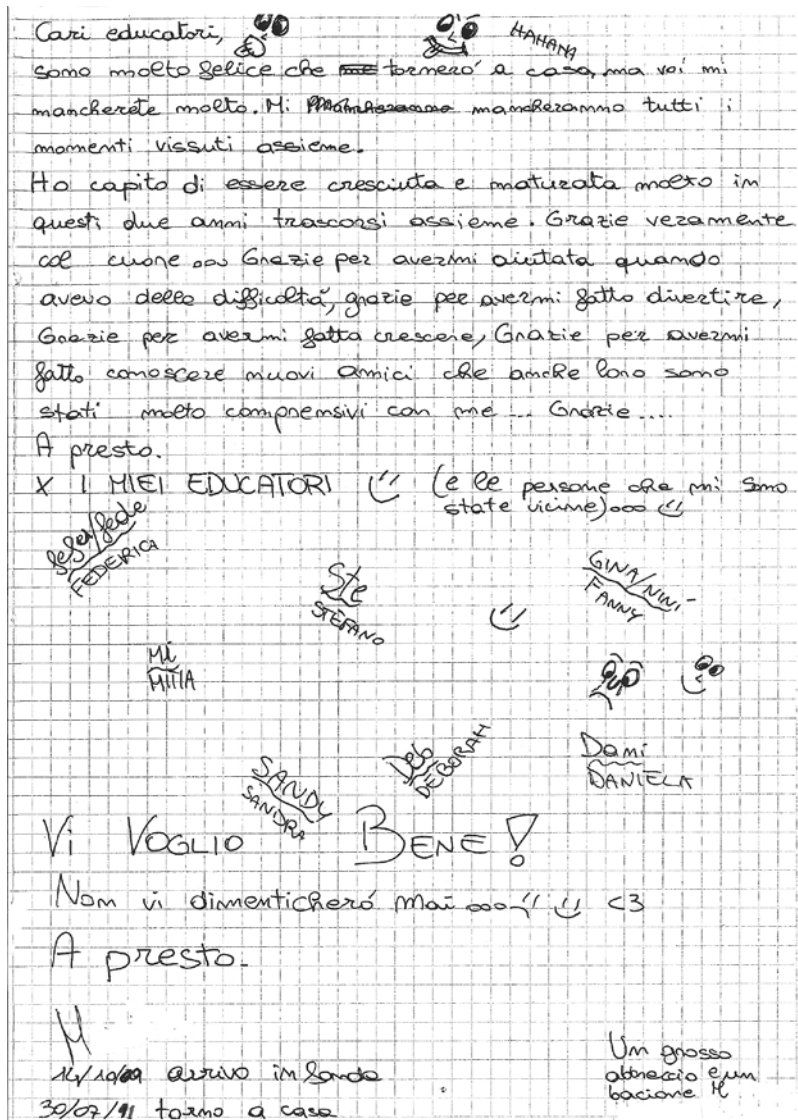 Cari educatori,
HAHAHA
sono molto felice che tornerò a casa, ma voi mi
mancherete molto. Mi mancheranno tutti i
momenti vissuti assieme.
Ho capito di essere cresciuta e maturata molto in
questi due anni trascorsi assieme. Grazie veramente
col cuore ... Grazie per avermi aiutata quando
avevo delle difficoltà, grazie per avermi fatto divertire,
Grazie per avermi fatta crescere, Grazie per avermi
fatto conoscere nuovi amici che anche loro sono
stati molto comprensivi con me ... Grazie....
A presto.
X I MIEI EDUCATORI (e le persone che mi sono
state vicine)...
fede
FEDERICA
Ste
STEFANO
GINA/NINI
FANNY
Mi
SANDY
SANDRA
Deb
DEBORAH
Dani
DANIELA
Vi VOGLIO BENE!
Non vi dimenticherò mai... <3
A presto.
M
arrivo in
30/07/11 torno a casa
Un grosso
abbraccio e un
bacione M